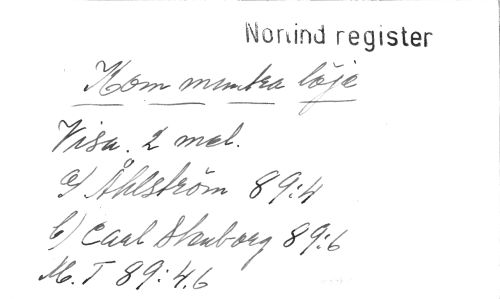 Norlind register
Kom muntra löje
Visa. 2 mel.
a) Åhlström 89:4
b) Carl Stenborg 89:6
M.T 89:4.6